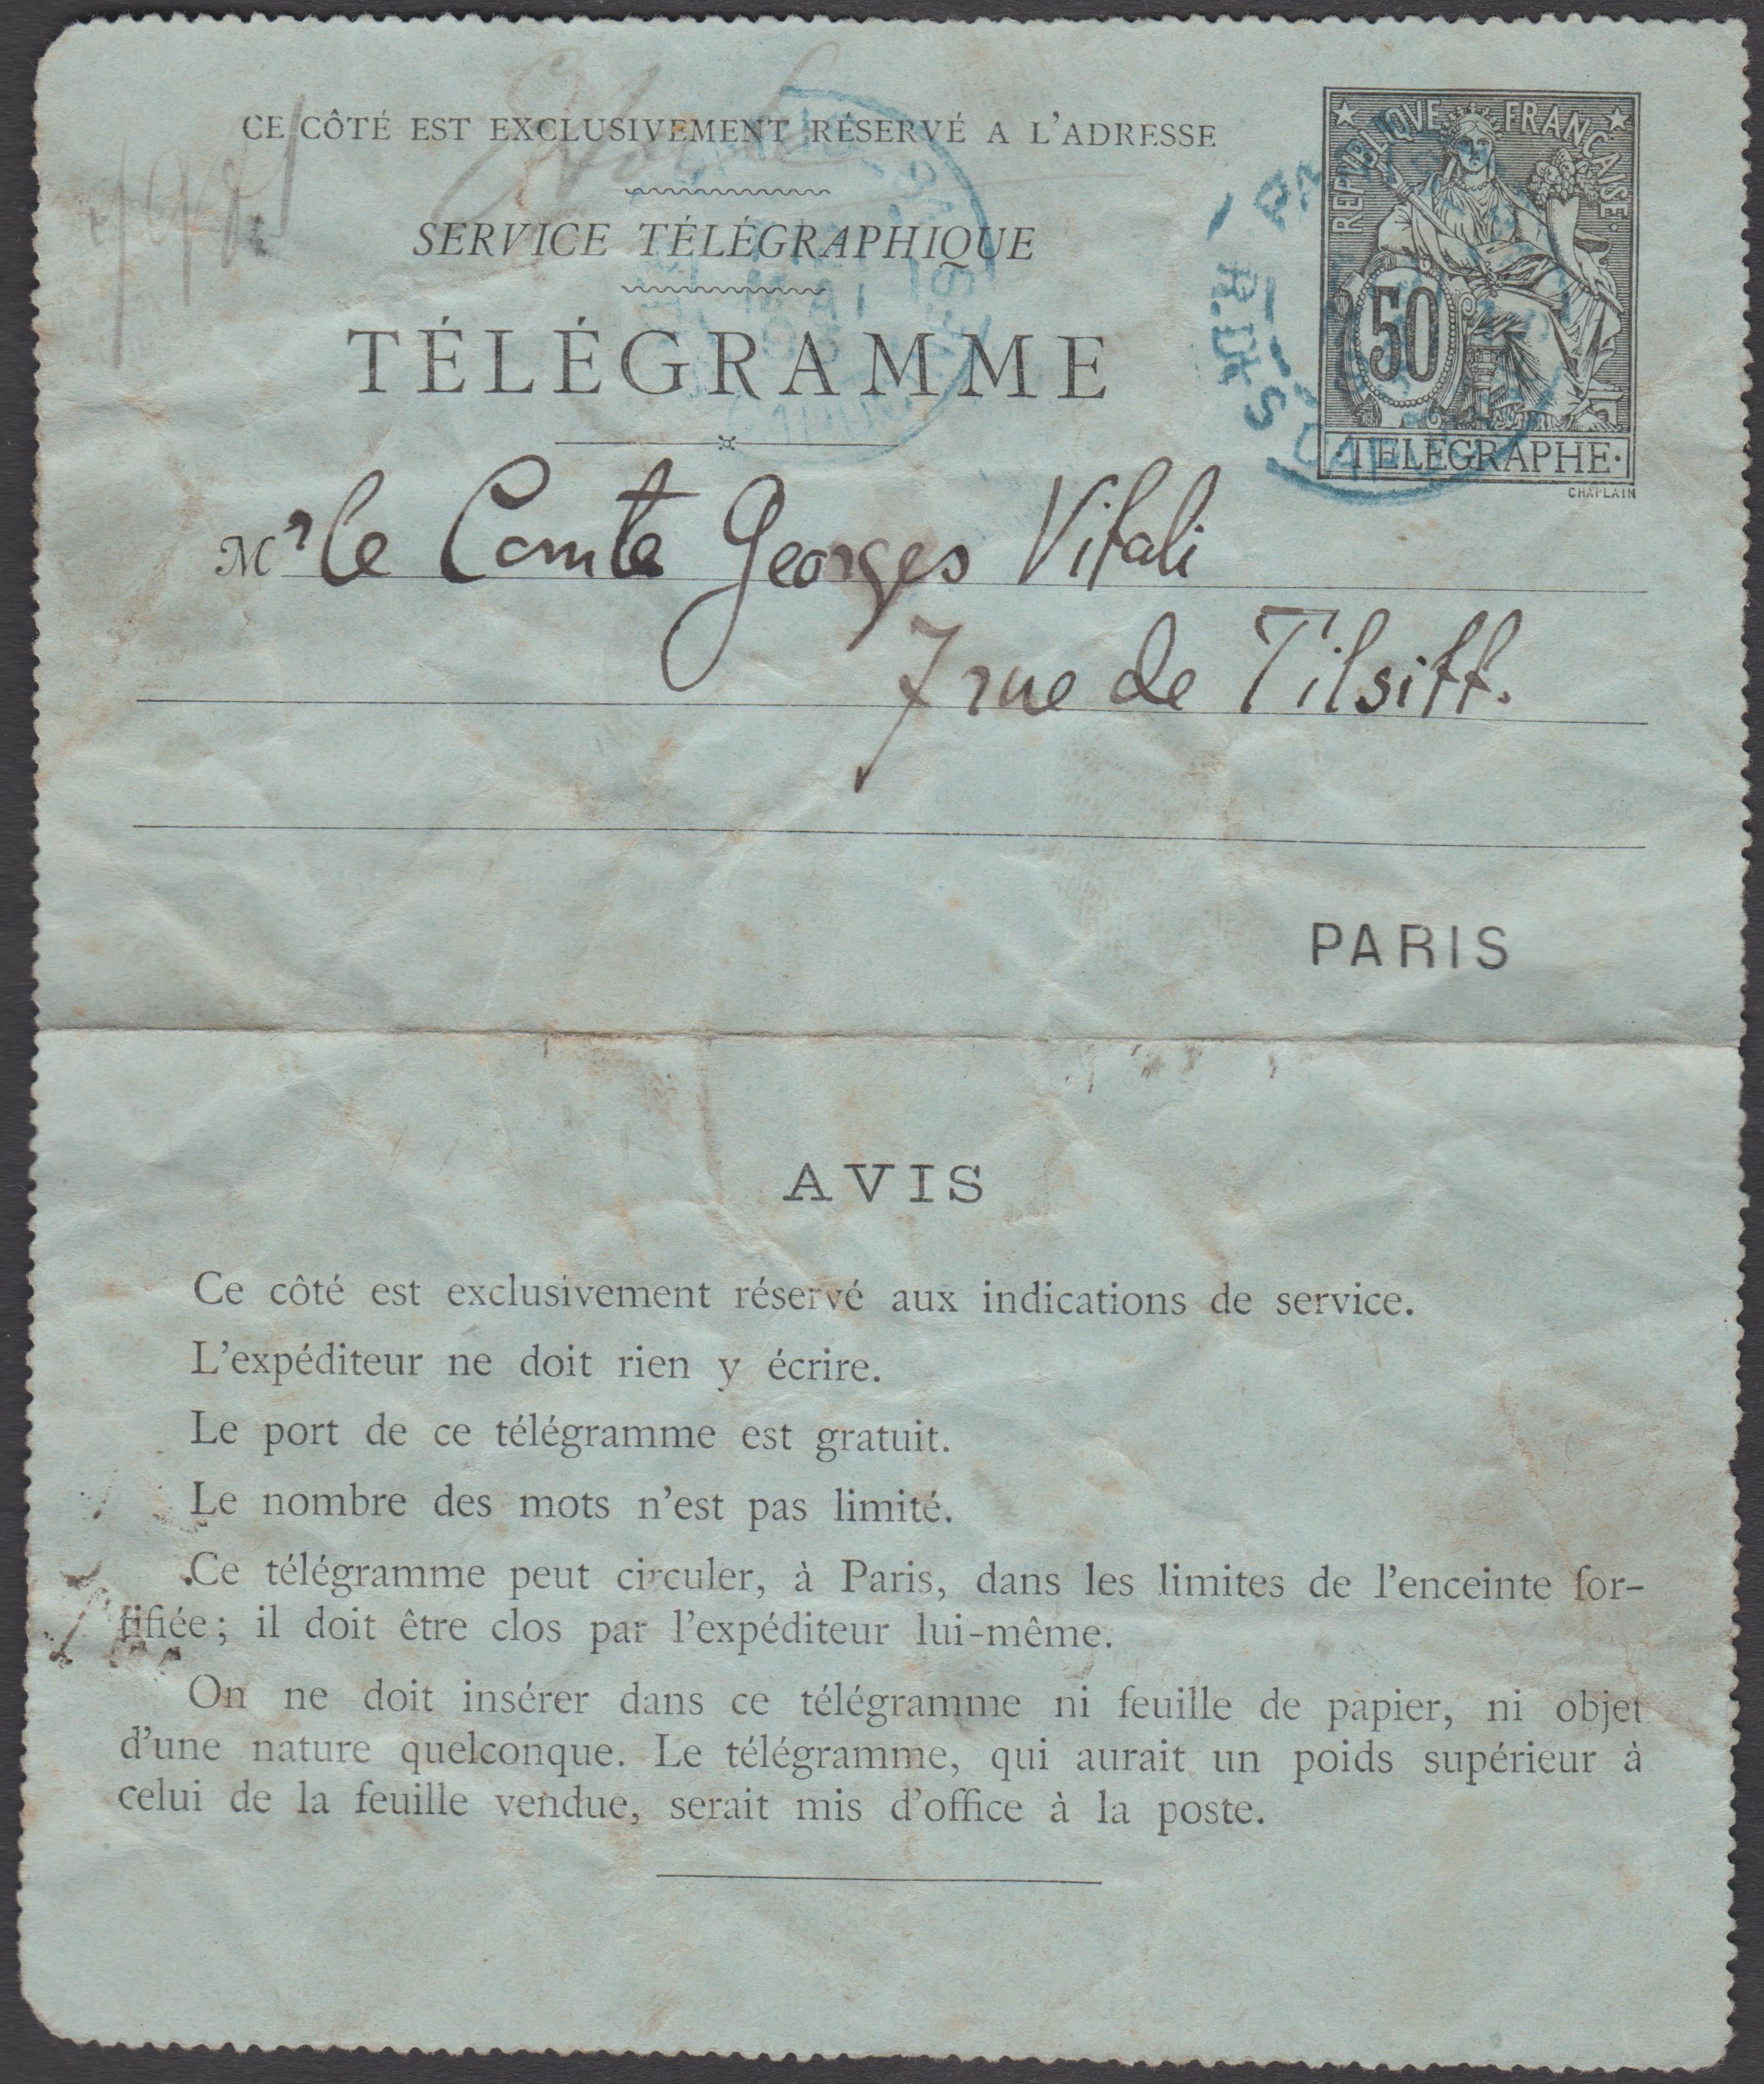 CE CÔTÉ EST EXCLUSIVEMENT RÉSERVÉ A L'ADRESSE
SERVICE TÉLÉGRAPHIQUE
TÉLÉGRAMME
REPUBLIQUE FRANÇAISE
50
TELEGRAPHE
CHAPLAIN
Mr le Comte Georges Vitali
7 rue de Tilsitt.
PARIS
AVIS
Ce côté est exclusivement réservé aux indications de service.
L'expéditeur ne doit rien y écrire.
Le port de ce télégramme est gratuit.
Le nombre des mots n'est pas limité.
Ce télégramme peut circuler, à Paris, dans les limites de l'enceinte for-
tifiée; il doit être clos par l'expéditeur lui-même.
On ne doit insérer dans ce télégramme ni feuille de papier, ni objet
d'une nature quelconque. Le télégramme, qui aurait un poids supérieur à
celui de la feuille vendue, serait mis d'office à la poste.